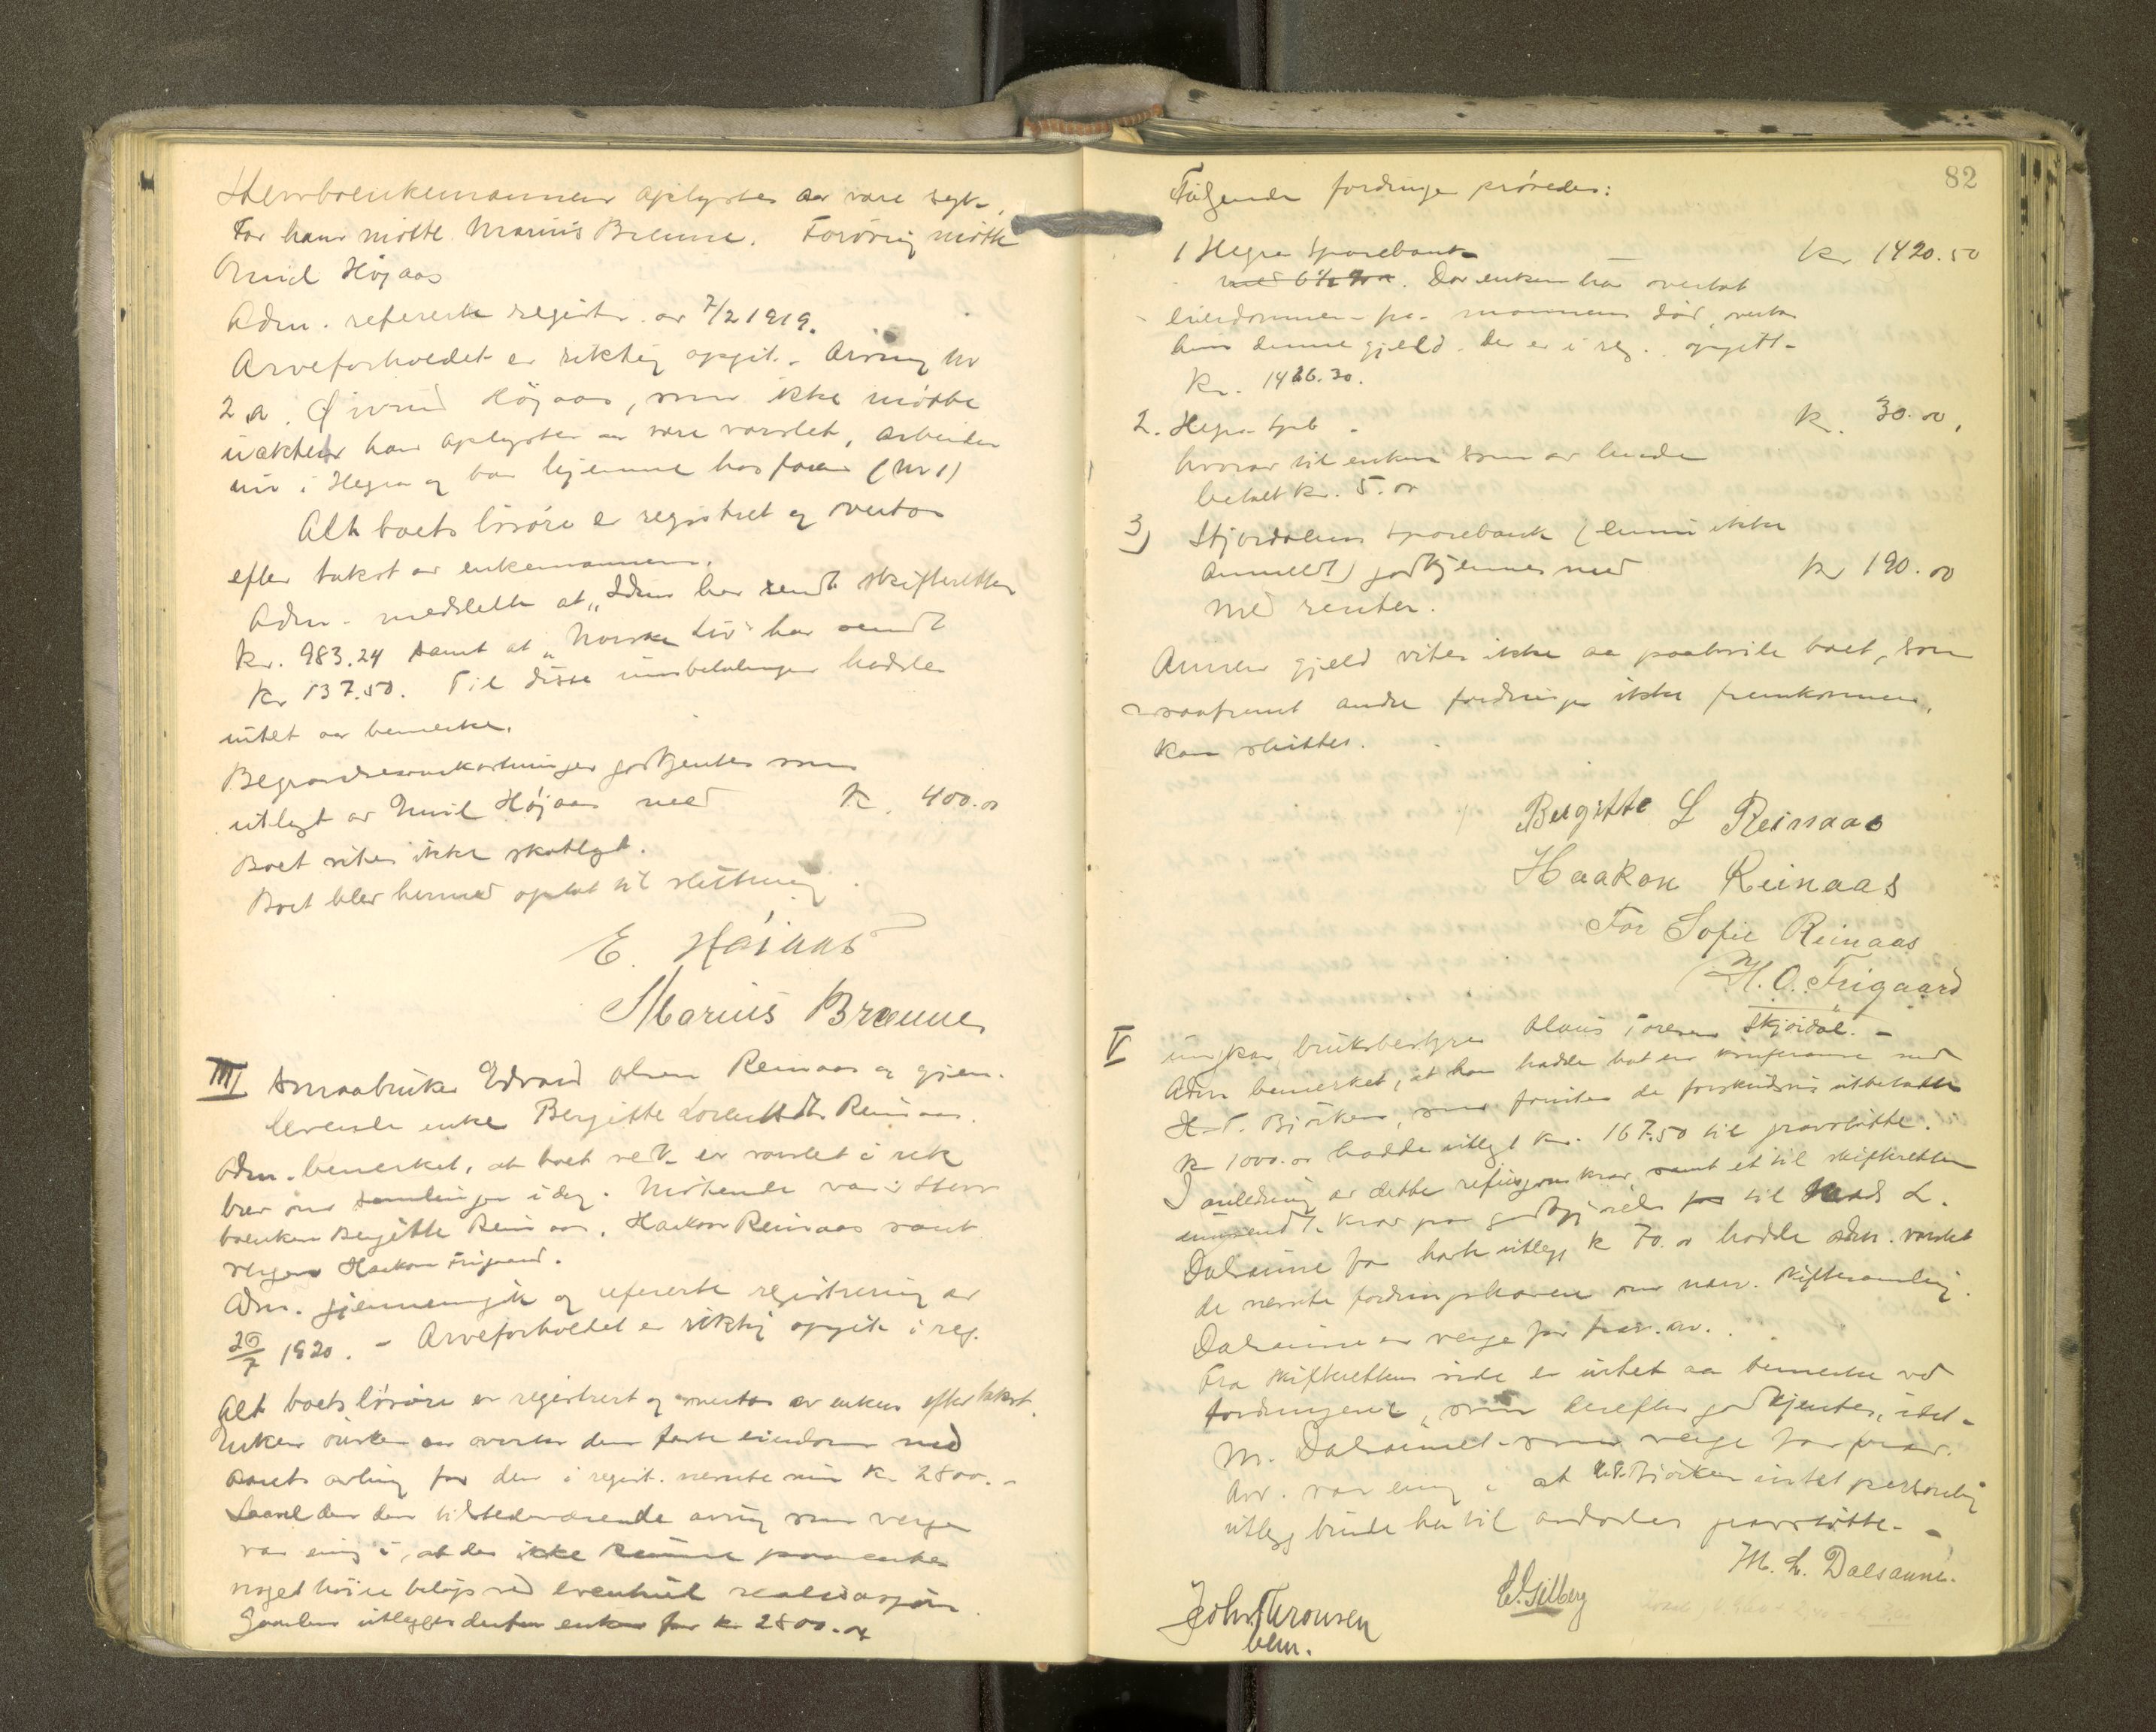 Stervboenkemannen oplystes aa være syk.
For ham møtte Marius Brenne. Forøvrig møtte
Emil Højaas
Adm. refererte registr. av 7/2 1919.
Arveforholdet er riktig opgit. Arving nr
2 a. Øivind Højaas, som ikke møtte
uaktet han oplystes aa være varslet, arbeider
nu i Hegra og bor hjemme hos faren (nr 1)
Alt boets løsøre er registrert og overtas
efter takst av enkemannen.
Adm. meddelte at "Idun" har sendt skifteretten
kr. 983.24 samt at "Norske Liv" har sendt
kr 137.50. Til disse innbetalinger hadde
intet aa bemerke.
Begravelsesomkostninger godkjentes som
utlagt av Emil Højaas med kr. 400.00
Boet vites ikke skatlagt.
Boet blev hermed optat til slutning.
E. Höiaas
Marius Brænne
III Smaabruker Edvard Olsen Reinaas og gjen-
levende enke Bergitte Lorentsdtr Reinaas.
Adm. bemerket, at boet vedk. er varslet i rek
brev om samlingen idag. Møtende var: Sterv
boenken Bergitte Reinaas, Haakon Reinaas samt
vergen Haakon Frigaard.
Adm. gjennemgik og refererte registrering av
26/7 1920. - Arveforholdet er riktig opgit i reg.
Alt boets løsøre er registrert og overtas av enken efter takst.
Enken ønsker aa overta den faste eiendom med
aarets avling for den i registr. nevnte sum kr. 2800.-
Saavel den den tilstedeværende arving som vergen
var enig i, at der ikke kunne paaventes
noget høiere beløp ved eventuel realisasjon.
Gaarden utlægges derfor enken for kr 2800.00
82
Følgende fordringer prøvedes:
1 Hegra Sparebank kr 1420.50
med 6 1/2 % r. Da enken har overtat
eiendommen fra mannens død, overtar
hun denne gjeld. Der er i reg. opgitt
kr. 1426.30.
2. Hegra Spb. kr. 30.00,
hvorav til enken som av hende
betalt kr. 5.00
3) Stjørdalens Sparebank (ennu ikke
anmeldt) godkjennes med kr 190.00
med renter.
Annen gjeld vites ikke aa paahvile boet, som
saafremt andre fordringer ikke fremkommer,
kan sluttes.
Bergitte L Reinaas
Haakon Reinaas
For Sofie Reinaas
H. O. Frigaard
V ungkar, bruksbestyrer Olaus Toresen Skjørdal. -
Adm bemerket, at han hadde hat en konferanse med
H. T. Bjørken, som foruten de forskudsvis utbetalte
kr 1000.00 hadde utlagt kr. 167.50 til gravstøtte.
I anledning av dette refusjonskrav, samt et til skifteretten
innsendt krav paa godtgjørelse til Mads L.
Dalsaune for havte utlegg kr 70.00 hadde adm. varslet
de nevnte fordringshavere om nærv. skiftesamling.
Dalsaune er verge for frav. arv.
Fra skifterettens side er intet aa bemerke ved
fordringene, som derefter godkjentes, idet
M. Dalsaune som verge for frav.
arv. var enig i at H.T. Bjørken intet personlig
utlegg burde ha til avdødes gravstøtte. -
M. L. Dalsaune.
E. Gilberg
John Thronsen
blm.